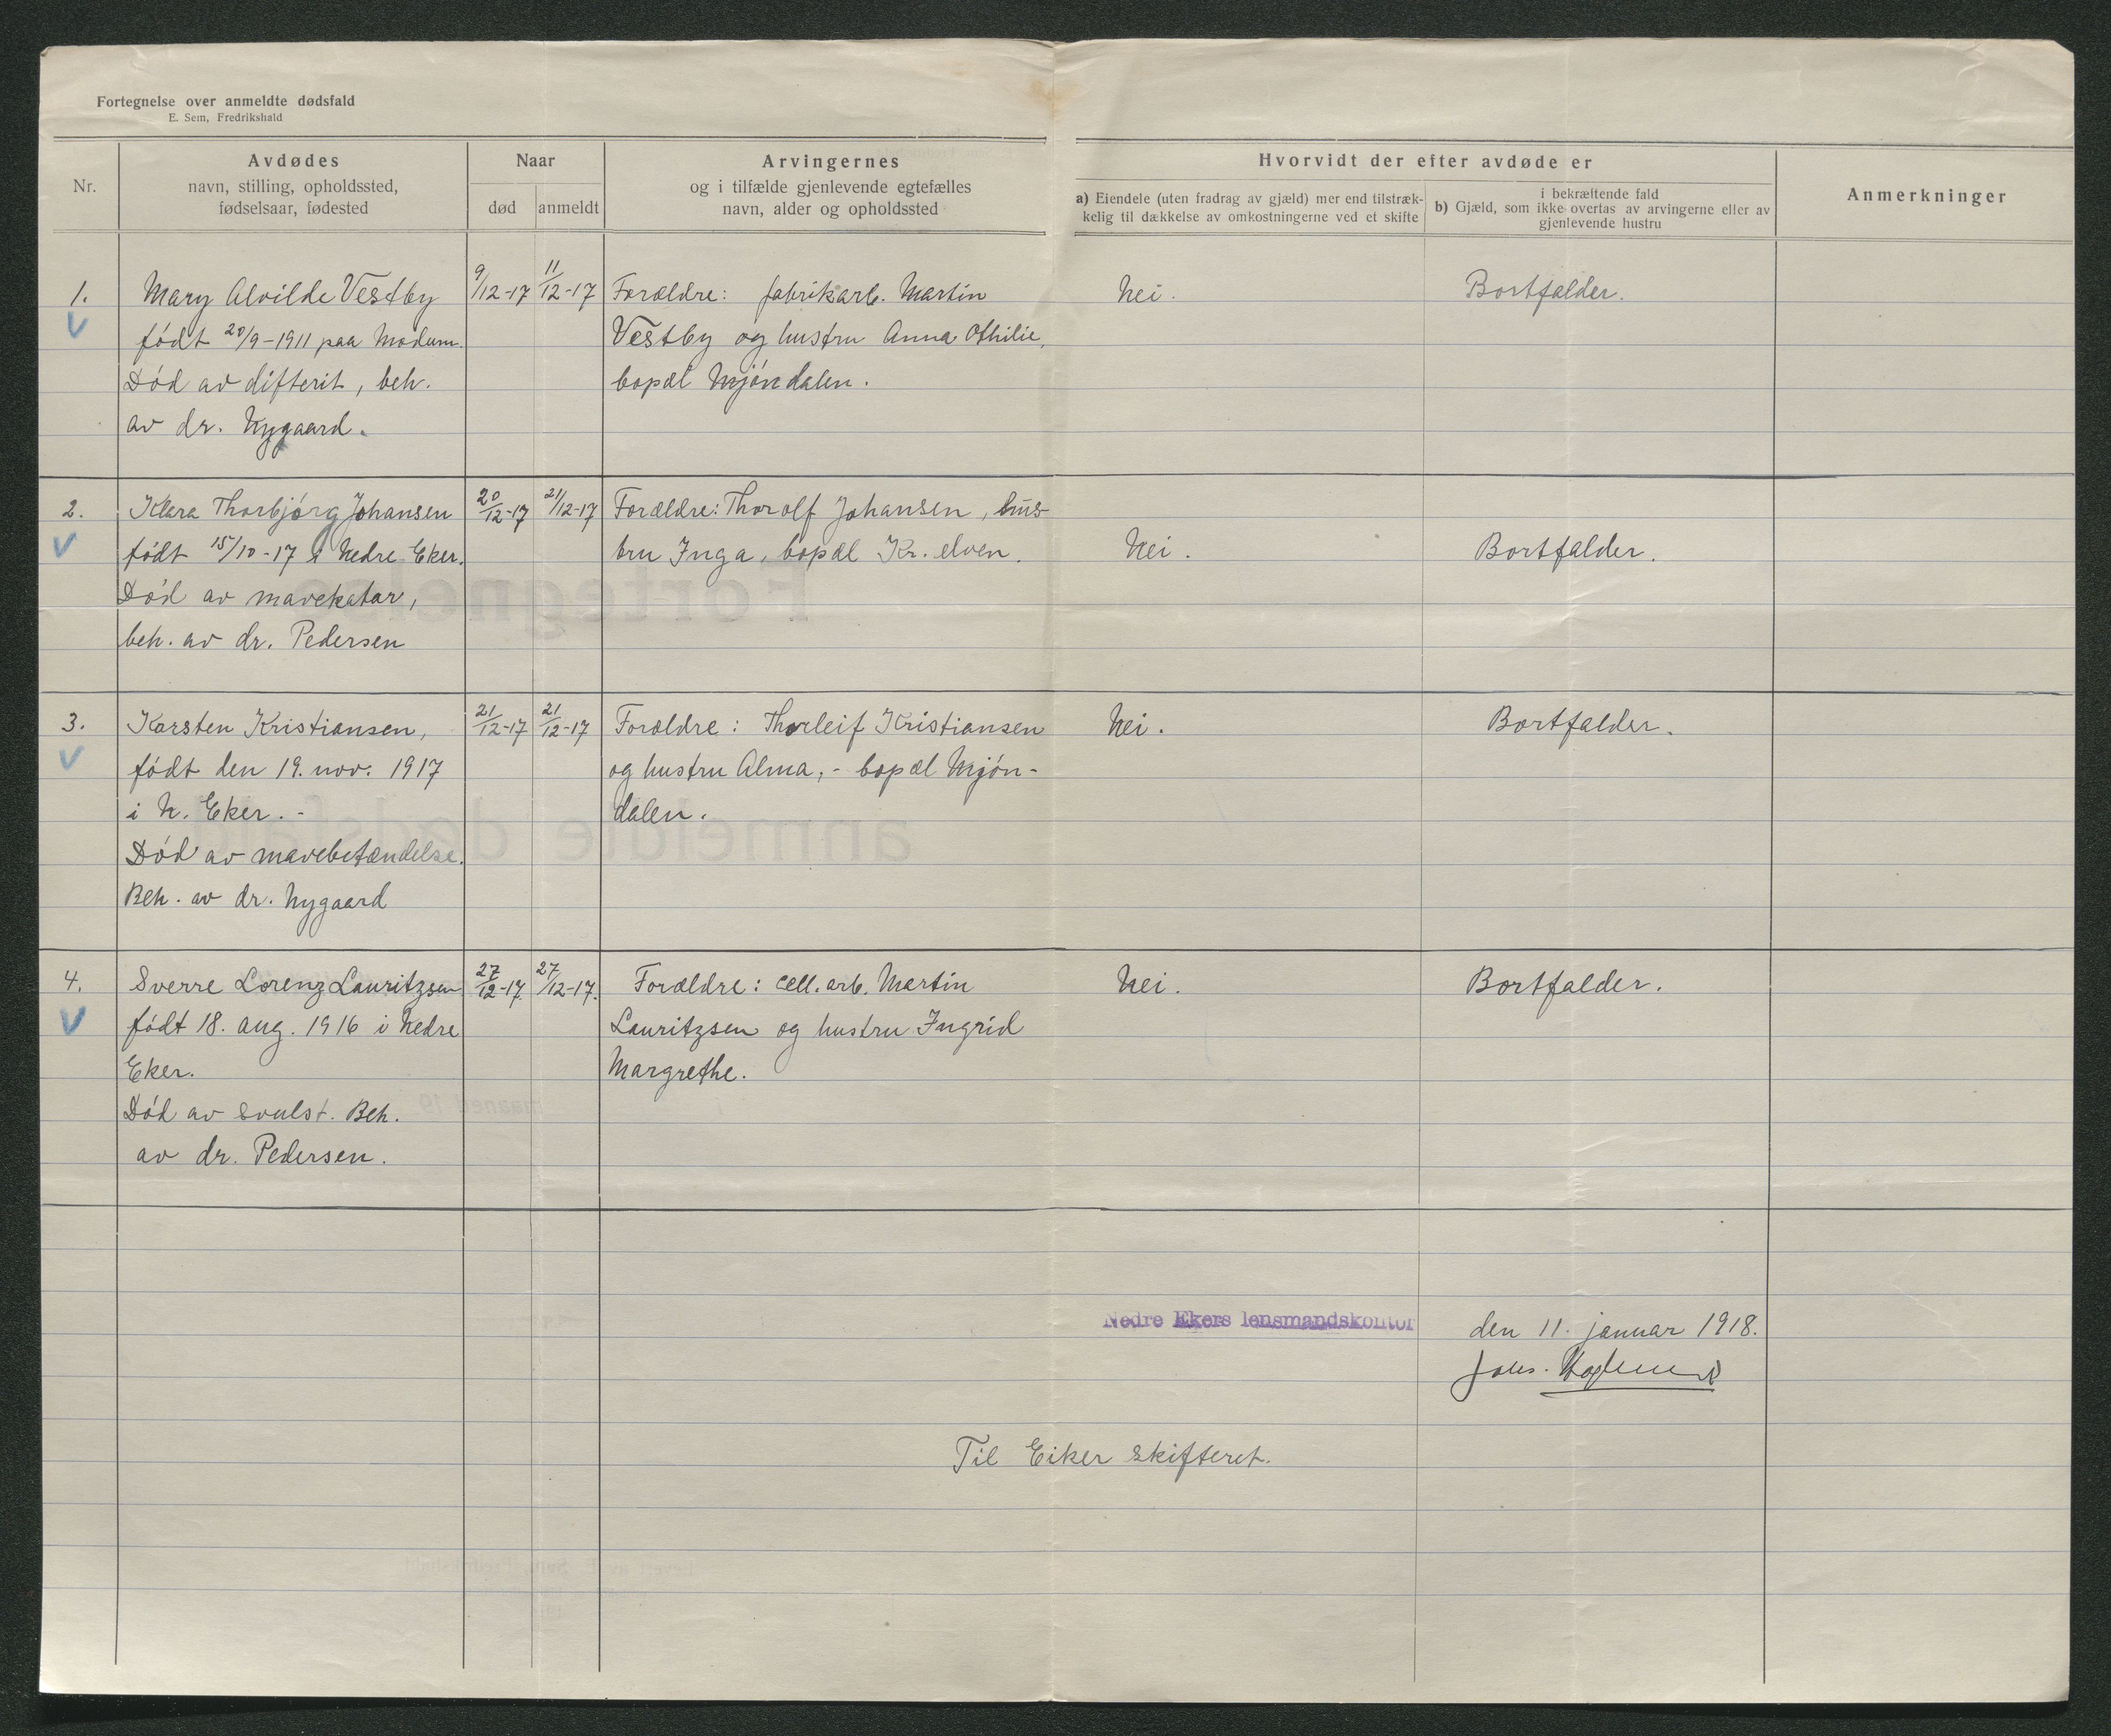 Fortegnelse over anmeldte dødsfald
E. Sem, Fredrikshald
Nr.
Avdødes
navn, stilling, opholdssted,
fødselsaar, fødested
Naar
død
anmeldt
Arvingernes
og i tilfælde gjenlevende egtefælles
navn, alder og opholdssted
Hvorvidt der efter avdøde er
a) Eiendele (uten fradrag av gjæld) mer end tilstræk-
kelig til dækkelse av omkostningerne ved et skifte
i bekræftende fald
b) Gjæld, som ikke overtas av arvingerne eller av
gjenlevende hustru
Anmerkninger
1.
Mary Alvilde Vestby
født 20/9-1911 paa Modum.
Død av difterit, beh.
av dr. Nygaard.
9/12-17
11/12-17
Forældre: fabrikarb. Martin
Vestby og hustru Anna Othilie,
bopæl Mjøndalen.
Nei.
Bortfalder.
2.
Klara Thorbjørg Johansen
født 15/10-17 i Nedre Eker.
Død av mavekatar,
beh. av dr. Pedersen
20/12-17
21/12-17
Forældre: Thorolf Johansen, hus-
tru Inga, bopæl Kr. elven.
Nei.
Bortfalder.
3.
Karsten Kristiansen,
født den 19. nov. 1917
i N. Eker. -
Død av mavebetændelse.
Beh. av dr. Nygaard
21/12-17
21/12-17
Forældre: Thorleif Kristiansen
og hustru Alma, - bopæl Mjøn-
dalen.
Nei.
Bortfalder.
4.
Sverre Lorenz Lauritzsen
født 18. aug. 1916 i Nedre
Eker.
Død av svulst. Beh.
av dr. Pedersen.
27/12-17.
27/12-17.
Forældre: cell. arb. Martin
Lauritzsen og hustru Ingrid
Margrethe.
Nei.
Bortfalder.
Nedre Ekers lensmandskontor
den 11. januar 1918.
Til Eiker skifteret.